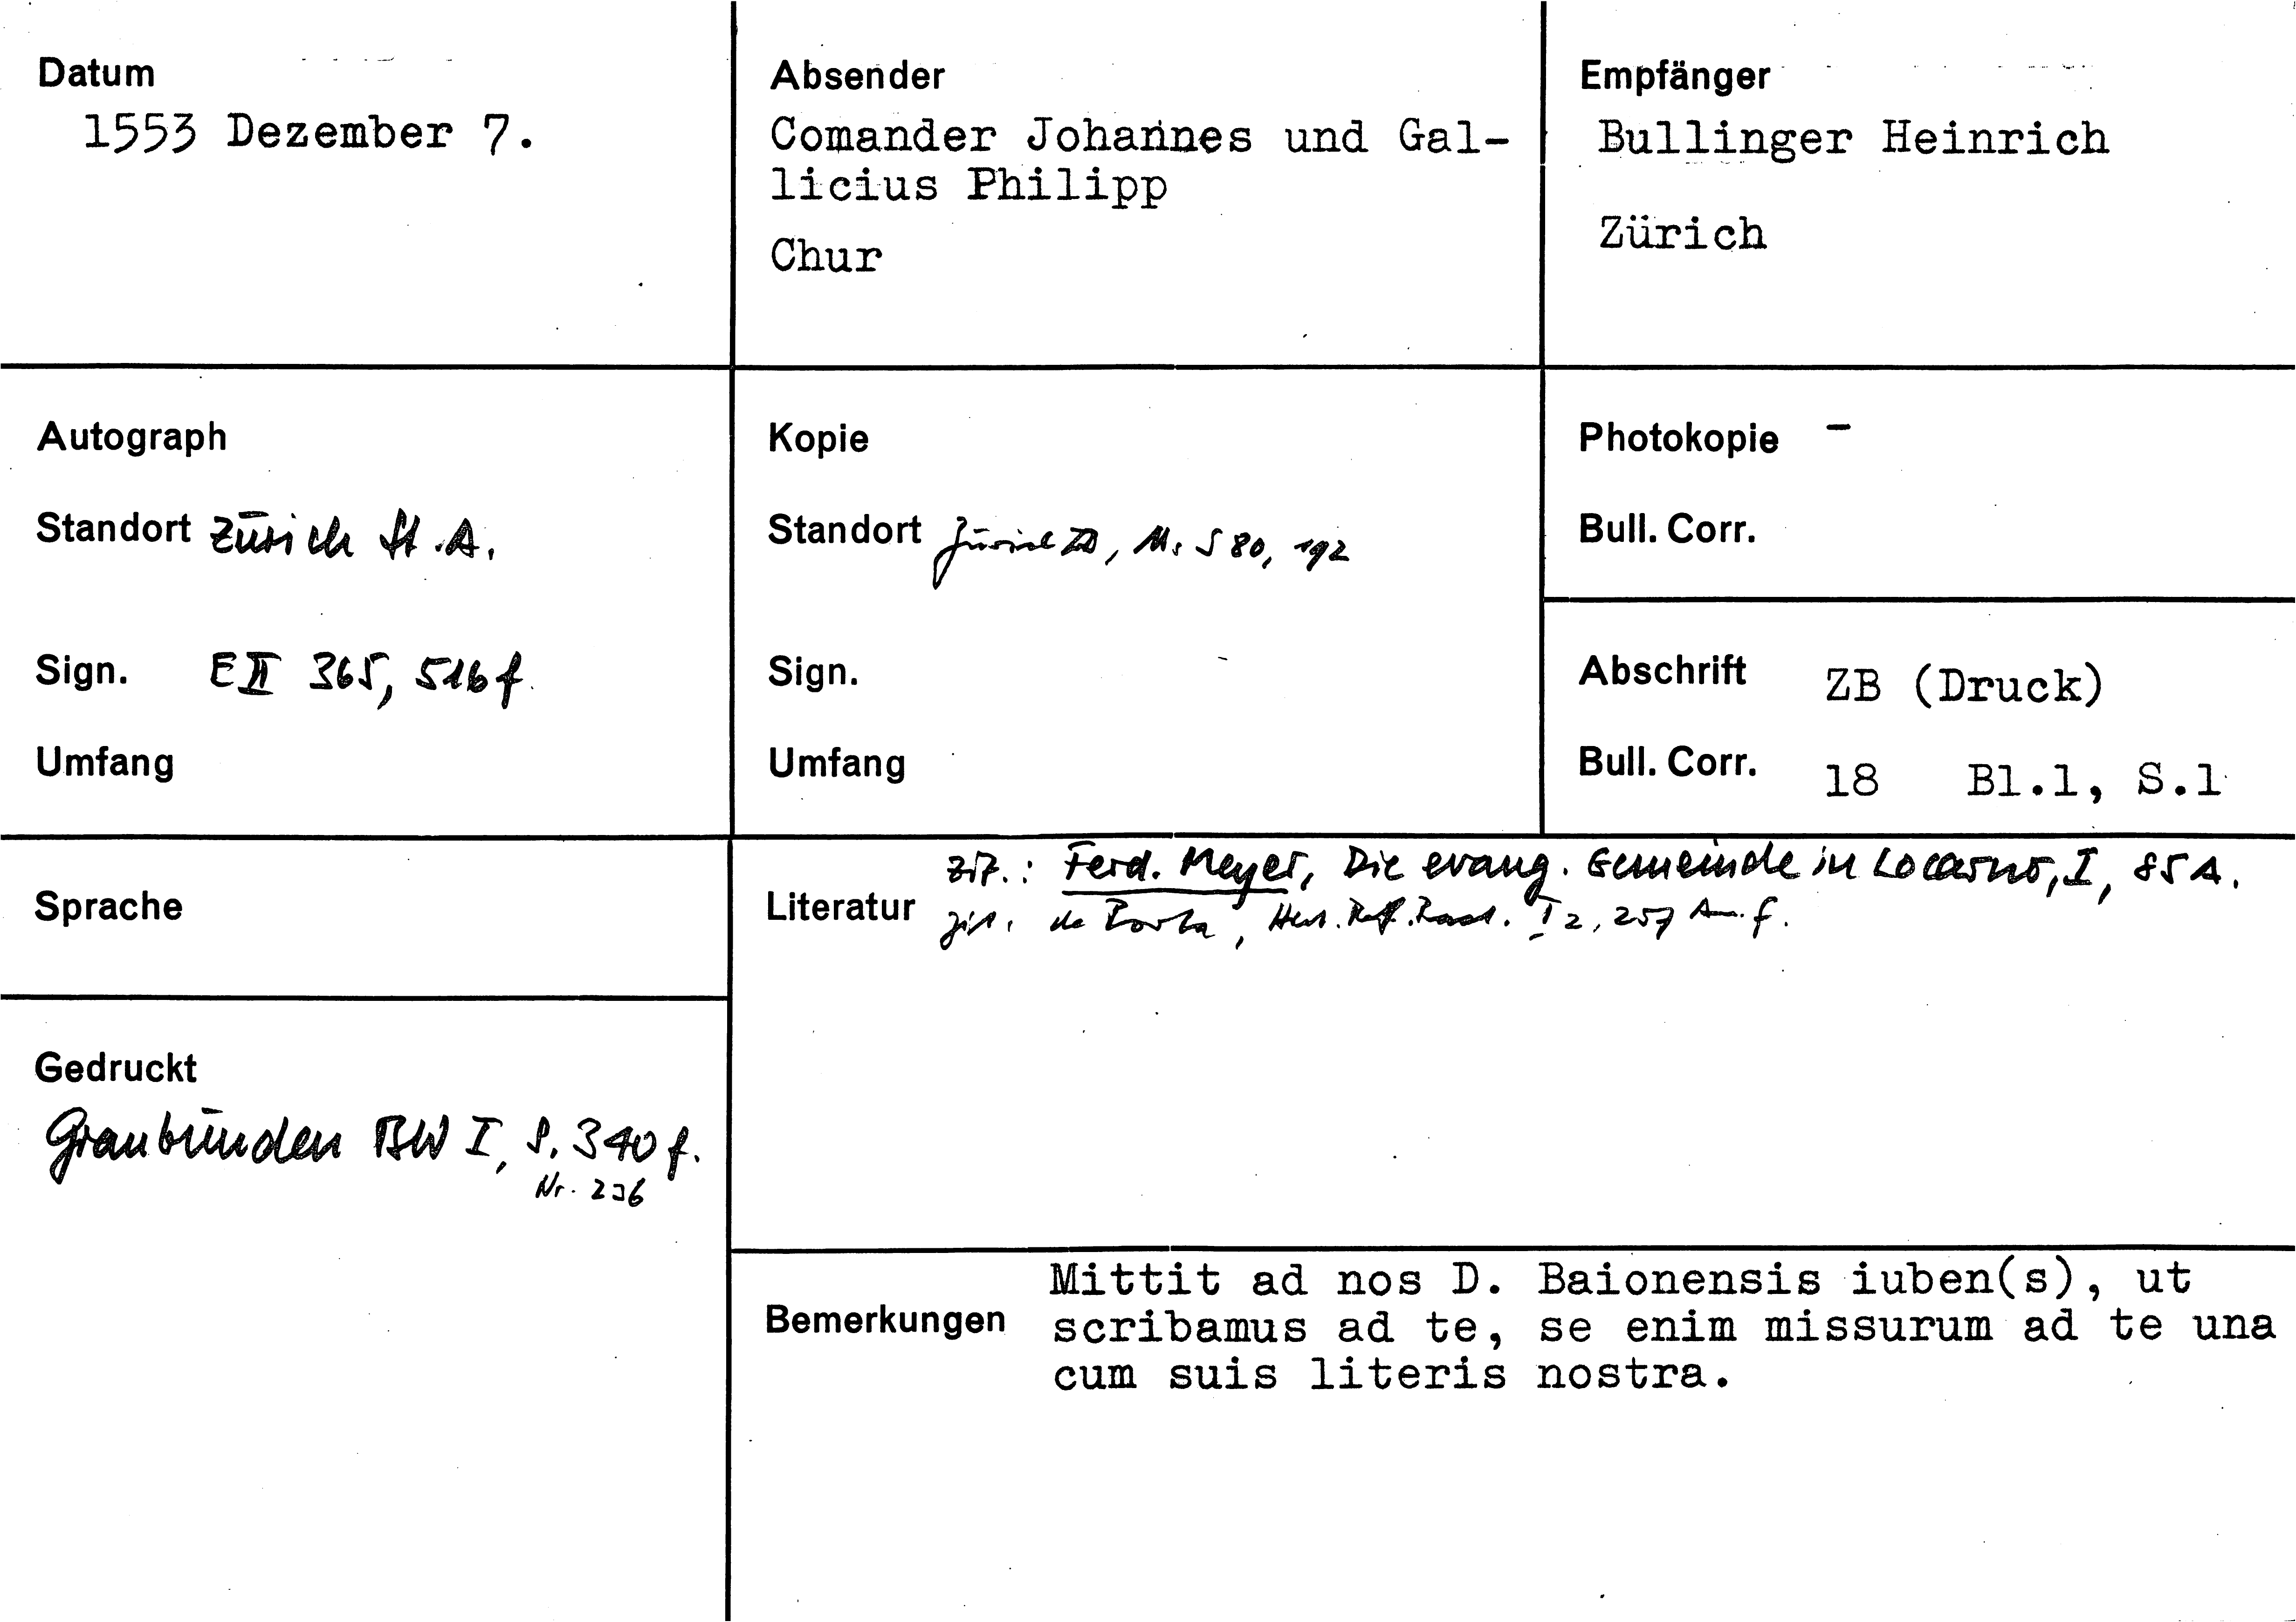 Datum
1553 Dezember 7.
Absender
Comander Johannes und Gal-
licius Philipp
Chur
Empfänger
Bullinger Heinrich
Zürich
Autograph
Standort Zürich St.A.
Sign. E II 365, 516 f.
Umfang
Kopie
Standort Zürich ZB, Ms S 80, 192
Sign.
Umfang
Photokopie -
Bull. Corr.
Abschrift ZB (Druck)
Bull. Corr. 18 Bl.1, S.1
Sprache
Gedruckt
Graubünden BW I, S. 340 f.
Nr. 236
Literatur
zit.: Ferd. Meyer, Die evang. Gemeinde in Locarno, I, 85 A.
zit. de Porta, Hist. Ref. Raet. I 2, 257 Anm. f.
Bemerkungen
Mittit ad nos D. Baionensis iuben(s), ut
scribamus ad te, se enim missurum ad te una
cum suis literis nostra.